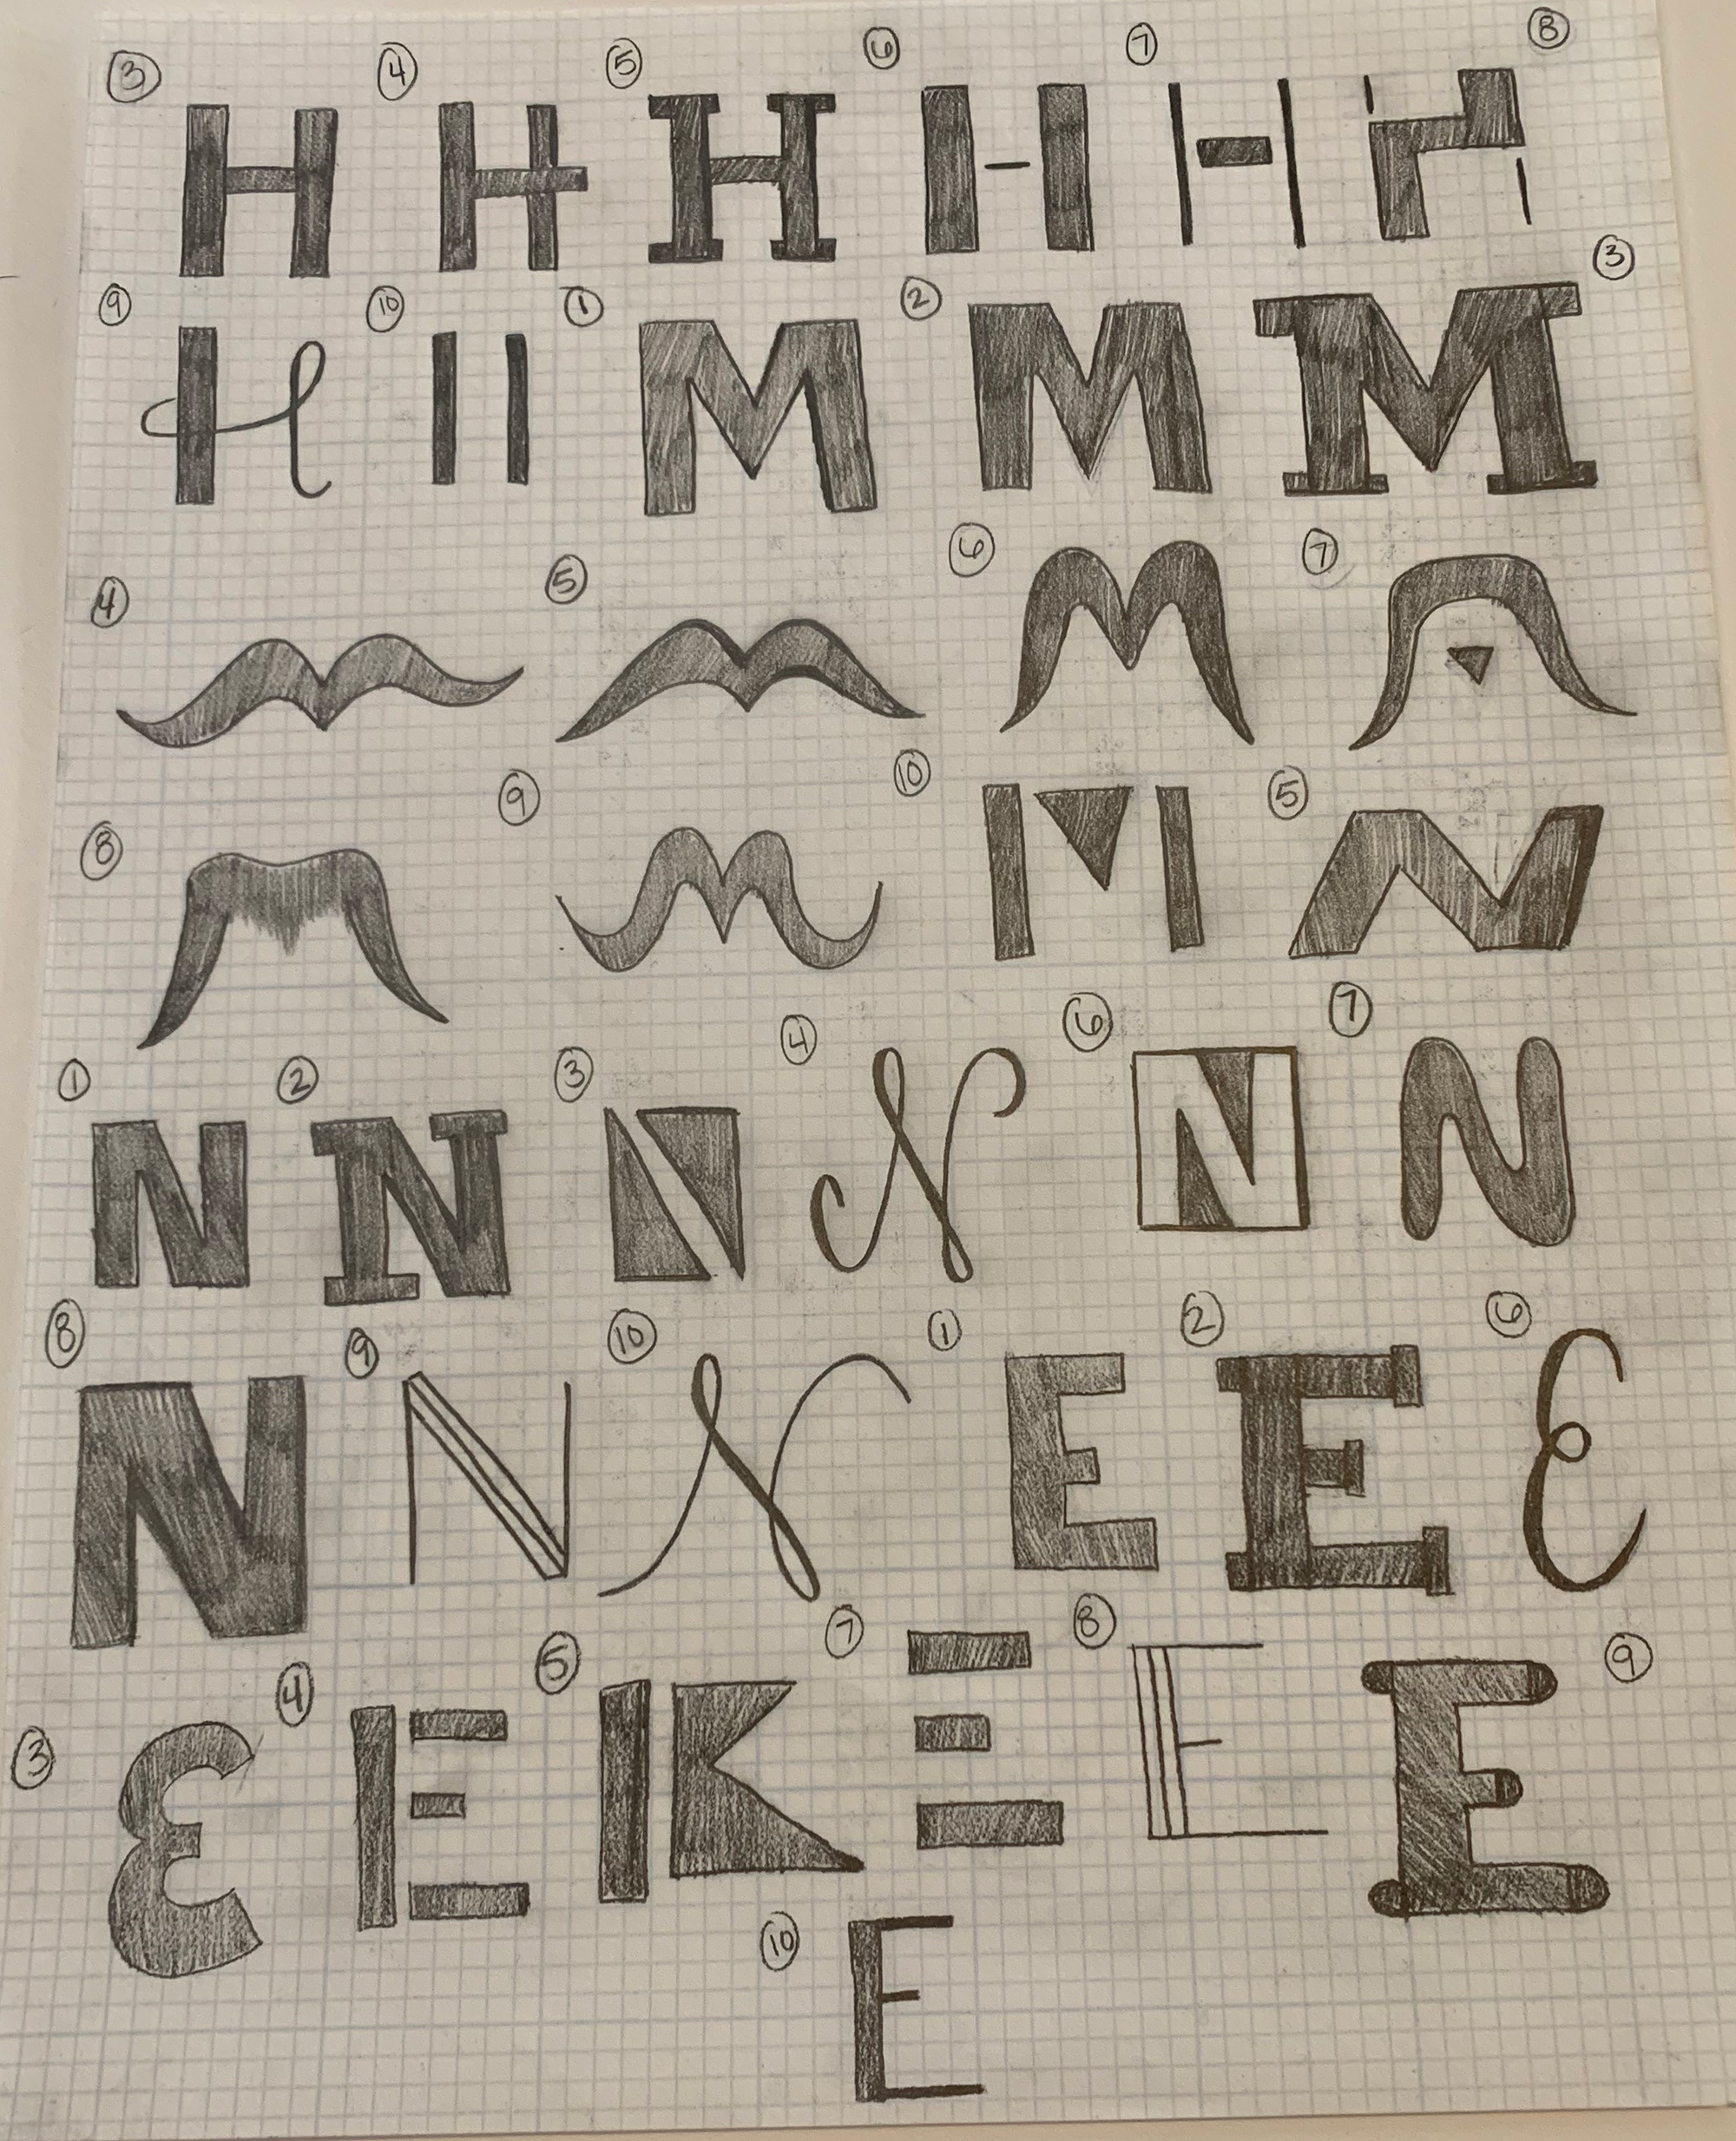 ③ H ④ H ⑤ H ⑥ H ⑦ H ⑧ H
⑨ H ⑩ H ① M ② M ③ M
④ M ⑤ M ⑥ M ⑦ M
⑧ M ⑨ M ⑩ M ⑤ N
① N ② N ③ N ④ N ⑥ N ⑦ N
⑧ N ⑨ N ⑩ N ① E ② E ⑥ E
③ E ④ E ⑤ E ⑦ E ⑧ E ⑨ E
⑩ E